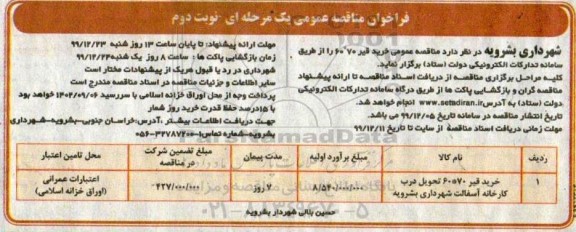 فراخوان مناقصه عمومی یک مرحله ای -نوبت دوم
شهرداری بشرویه در نظر دارد مناقصه عمومی خرید قیر ۷۰*۶۰ را از طریق
سامانه تدارکات الکترونیکی دولت (ستاد) برگزار نماید.
کلیه مراحل برگزاری مناقصه از دریافت اسناد مناقصه تا ارائه پیشنهاد
مناقصه گران و بازگشایی پاکت ها از طریق درگاه سامانه تدارکات الکترونیکی
دولت (ستاد) به آدرس www.setadiran.ir انجام خواهد شد.
تاریخ انتشار مناقصه در سامانه تاریخ ۹۹/۱۲/۰۵ می باشد
مهلت زمانی دریافت اسناد مناقصه از سایت تا تاریخ ۹۹/۱۲/۱۱
مهلت ارائه پیشنهاد: تا پایان ساعت ۱۳ روز شنبه ۹۹/۱۲/۲۳
زمان بازگشایی پاکت ها : ساعت ۸ روز یک شنبه ۹۹/۱۲/۲۴
شهرداری در رد یا قبول هریک از پیشنهادات مختار است
سایر اطلاعات و جزئیات مناقصه در اسناد مناقصه مندرج است
پرداخت وجه از محل اوراق خزانه اسلامی با سررسید ۱۴۰۲/۰۹/۰۶ خواهد بود
با ۱۵درصد حفظ قدرت خرید روز شمار
جهت دریافت اطلاعات بیشتر ،آدرس:خراسان جنوبی-بشرویه-شهرداری
بشرویه-شماره تماس:۳۲۷۸۷۲۰۰-۰۵۶
ردیف نام کالا مبلغ برآورد اولیه مدت پیمان مبلغ تضمین شرکت در مناقصه محل تامین اعتبار
۱ خرید قیر ۷۰*۶۰ تحویل درب کارخانه آسفالت شهرداری بشرویه ۸/۵۴۰/۰۰۰/۰۰۰ ۷ روز ۴۲۷/۰۰۰/۰۰۰ اعتبارات عمرانی (اوراق خزانه اسلامی)
حسین بلالی شهردار بشرویه